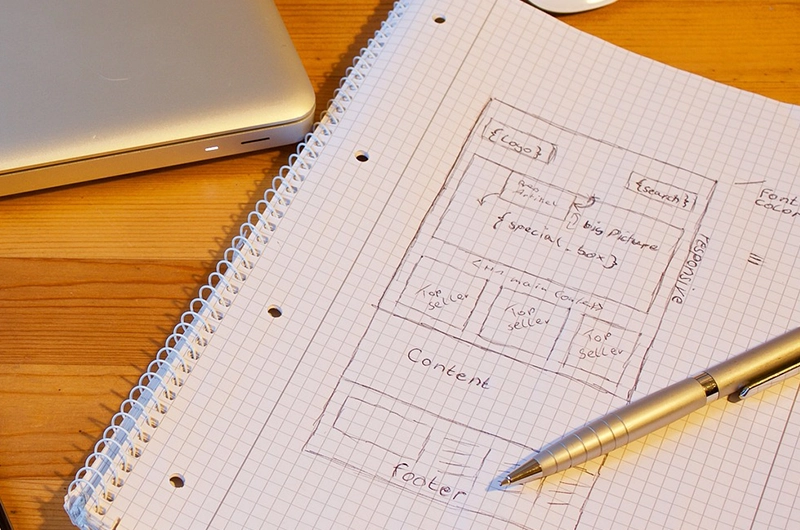 {Logo}
{search}
big Picture
{special-box}
responsive
main Content
Top
seller
Top
seller
Top
seller
Content
footer
Font